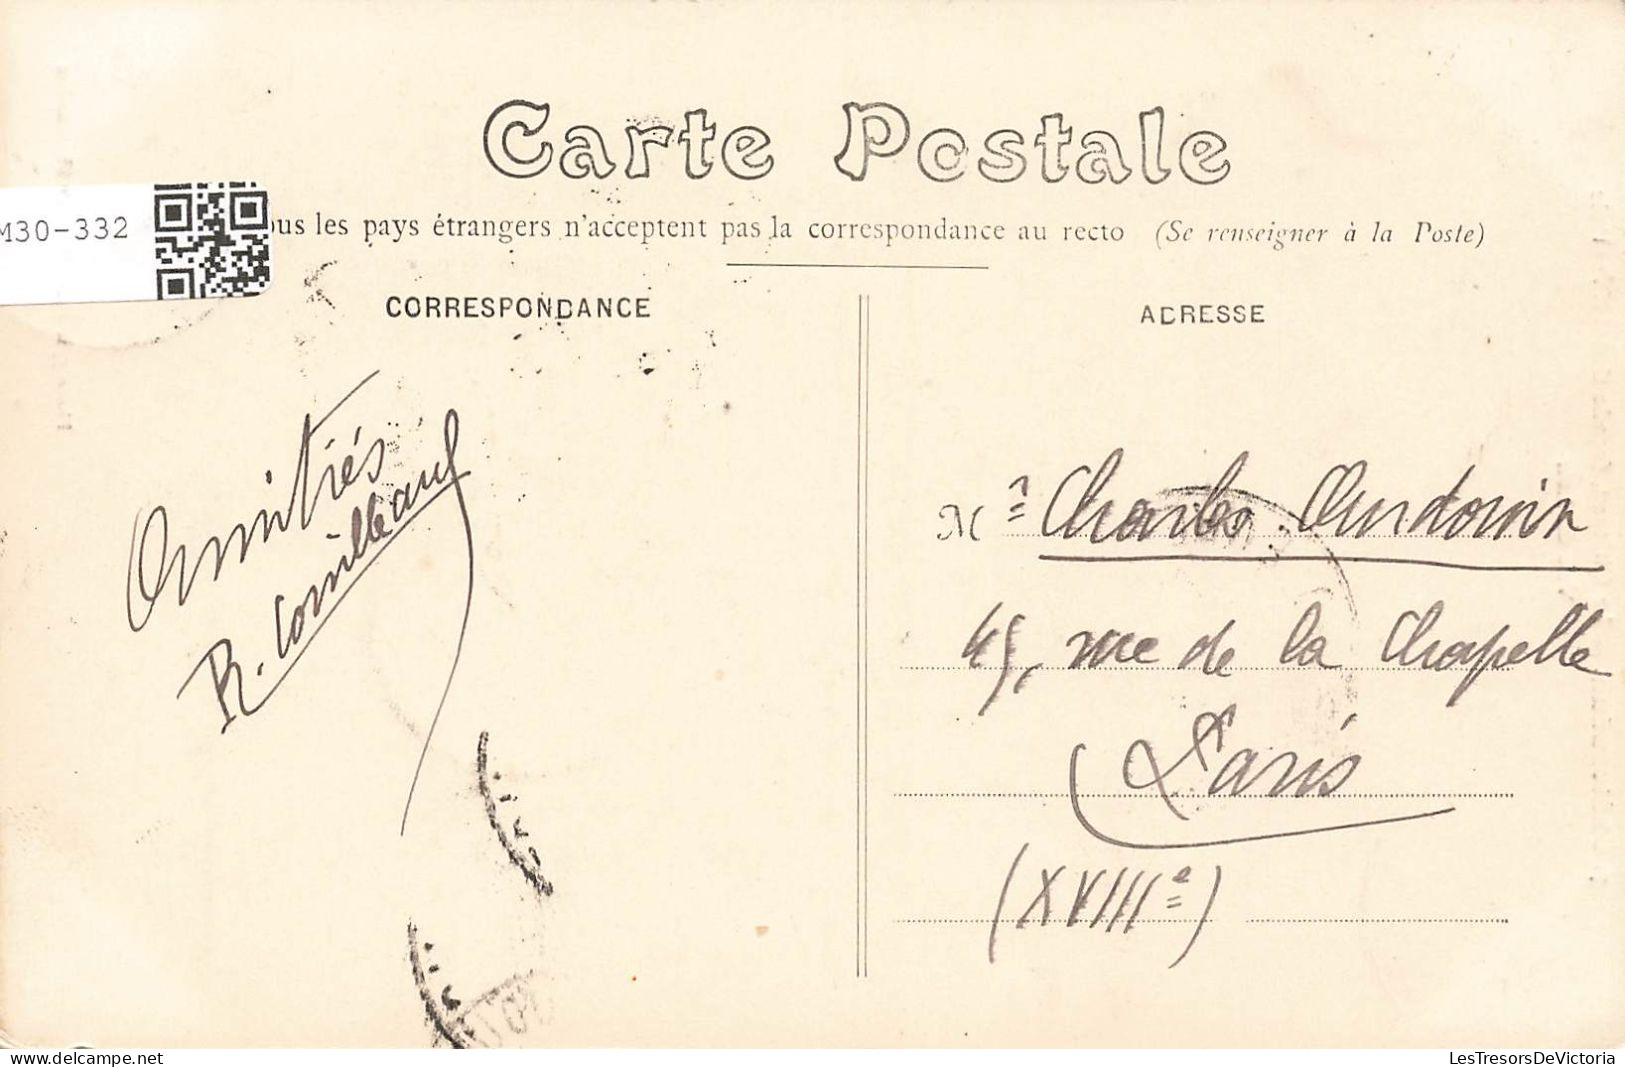 Carte Postale
M30-332
ous les pays étrangers n'acceptent pas la correspondance au recto (Se renseigner à la Poste)
CORRESPONDANCE
ADRESSE
Amitiés
R. Cornilleau
Mr Charles Audouin
45, rue de la Chapelle
Paris
(XVIIIe)
LesTresorsDeVictoria